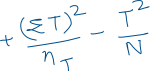 + (ΣT)²/n_T - T²/N